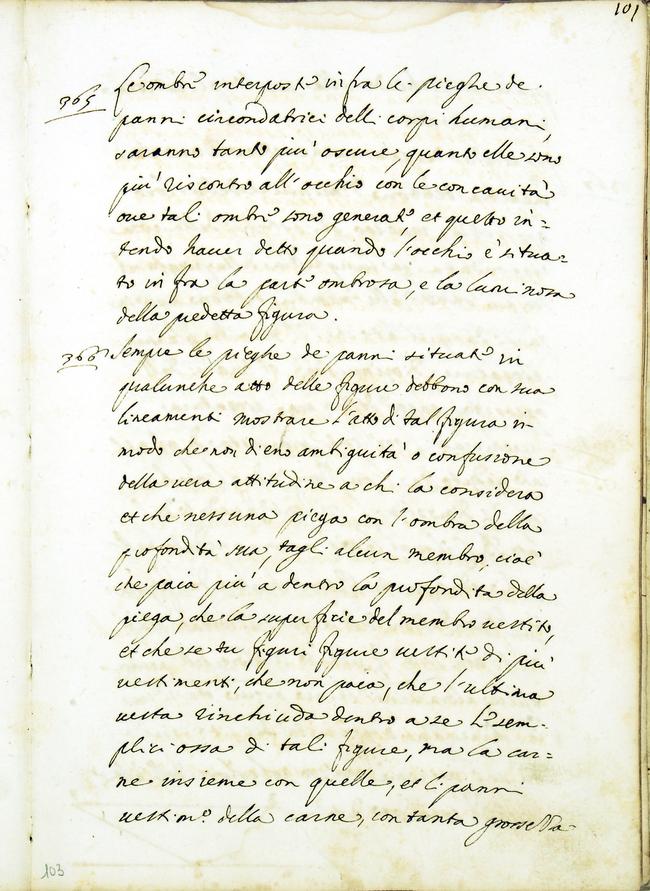 101
365 Le ombre interposte infra le pieghe de
panni circondatrici delli corpi humani,
saranno tanto più oscure, quanto elle sono
più riscontro all'occhio con le concavità
oue tali ombre sono generate, et questo in=
tendo hauer detto quando l'occhio è situa=
to in fra la parte ombrosa, e la luminosa
della predetta figura.
366 Sempre le pieghe de panni situate in
qualunche atto delle figure debbono con sua
lineamenti mostrare l'atto di tal figura in
modo che non dieno ambiguità o confusione
della uera attitudine a chi la considera
et che nessuna piega con l'ombra della
profondità sua, tagli alcun membro, cioè
che paia più a dentro la profondità della
piega, che la superficie del membro uestito,
et che se tu figuri figure uestite di più
uestimenti, che non paia, che l'ultima
uesta rinchiuda dentro a se le sem-
plici ossa di tali figure, ma la car=
ne insieme con quelle, et li panni
uestim.º della carne, con tanta grossezza
103